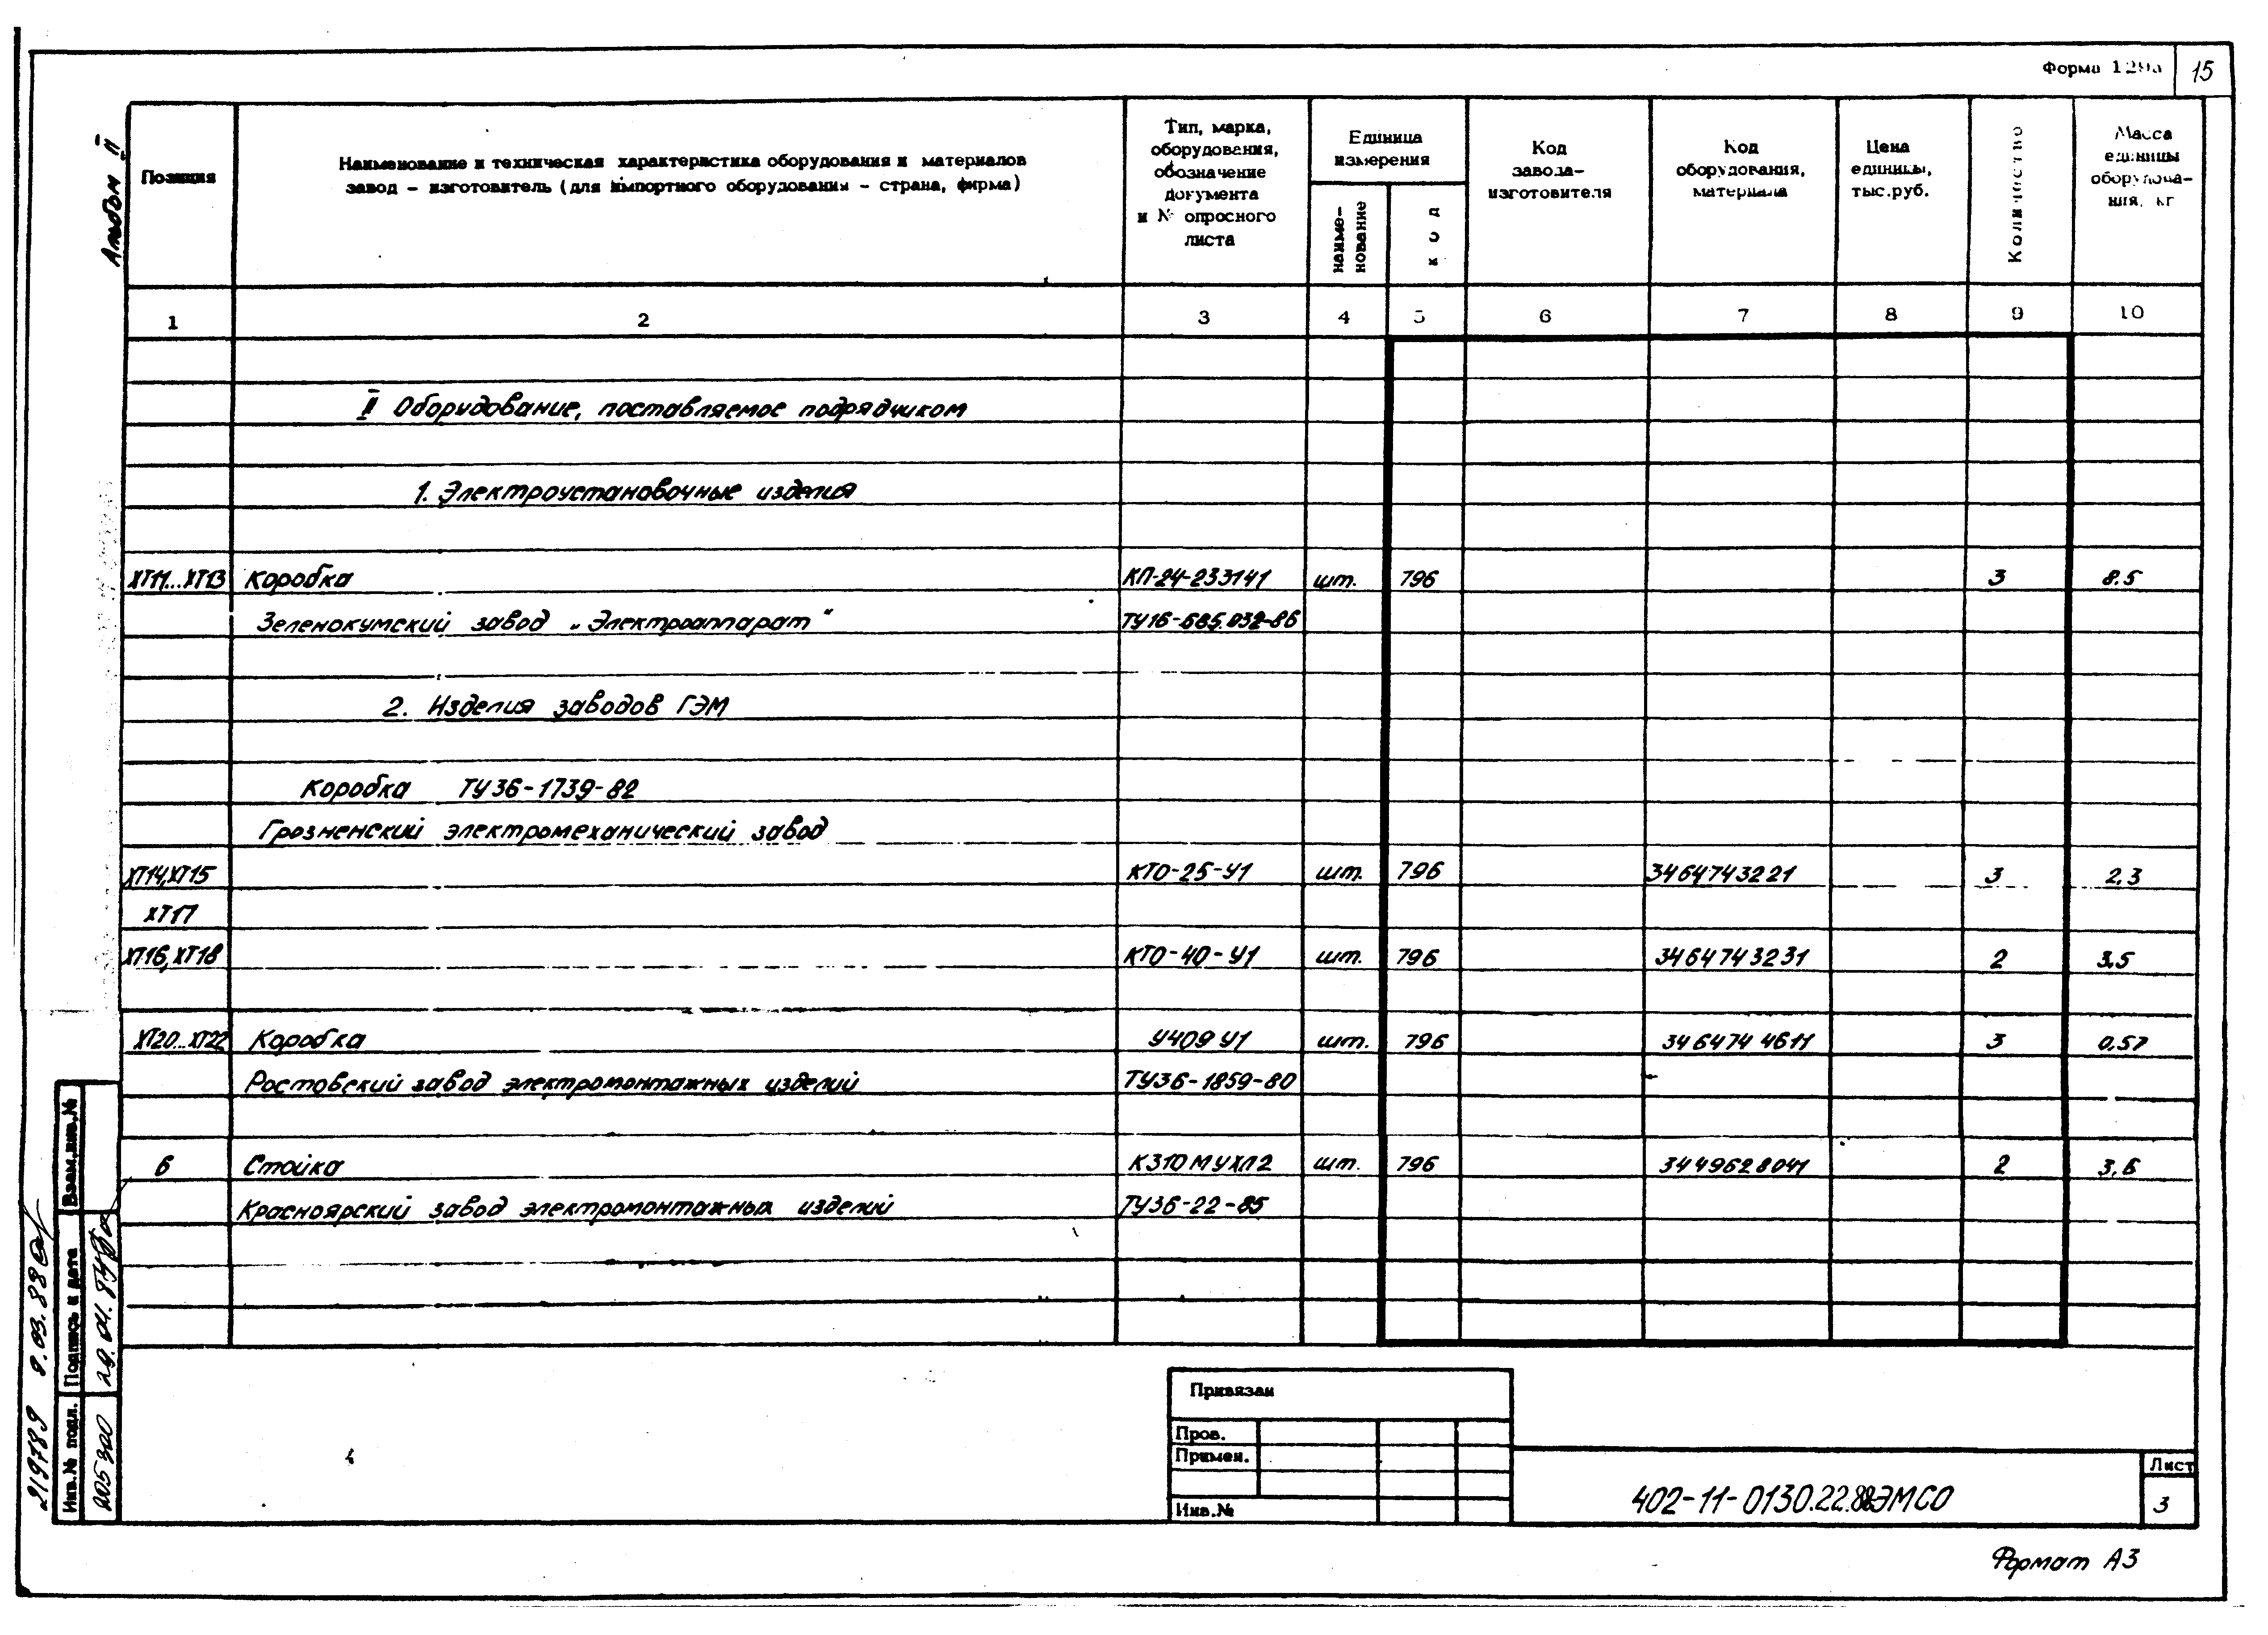 Форма 129а
15
Альбом II
Позиция
Наименование и техническая характеристика оборудования и материалов
завод - изготовитель (для импортного оборудования - страна, фирма)
Тип, марка,
оборудования,
обозначение
документа
и № опросного
листа
Единица
измерения
наиме-
нование
код
Код
завода-
изготовителя
Код
оборудования,
материала
Цена
единицы,
тыс.руб.
Количество
Масса
единицы
оборудова-
ния, кг
1 2 3 4 5 6 7 8 9 10
II Оборудование, поставляемое подрядчиком
1. Электроустановочные изделия
ХТ11...ХТ13 Коробка КП-24-233141 шт. 796 3 8.5
Зеленокумский завод „Электроаппарат" ТУ16-685.032-86
2. Изделия заводов ГЭМ
Коробка ТУ36-1739-82
Грозненский электромеханический завод
ХТ14,ХТ15 КТО-25-У1 шт. 796 3464743221 3 2,3
ХТ17
ХТ16,ХТ18 КТО-40-У1 шт. 796 3464743231 2 3,5
ХТ20...ХТ22 Коробка У409 У1 шт. 796 3464744611 3 0,57
Ростовский завод электромонтажных изделий ТУ36-1859-80
6 Стойка К310МУХЛ2 шт. 796 3449628041 2 3,6
Красноярский завод электромонтажных изделий ТУ36-22-85
Взам.инв.№
Подпись и дата
29.01.
Инв.№ подл.
205300
9.03.88
Привязан
Пров.
Примен.
Инв.№
402-11-0130.22.88ЭМСО
Лист
3
Формат А3